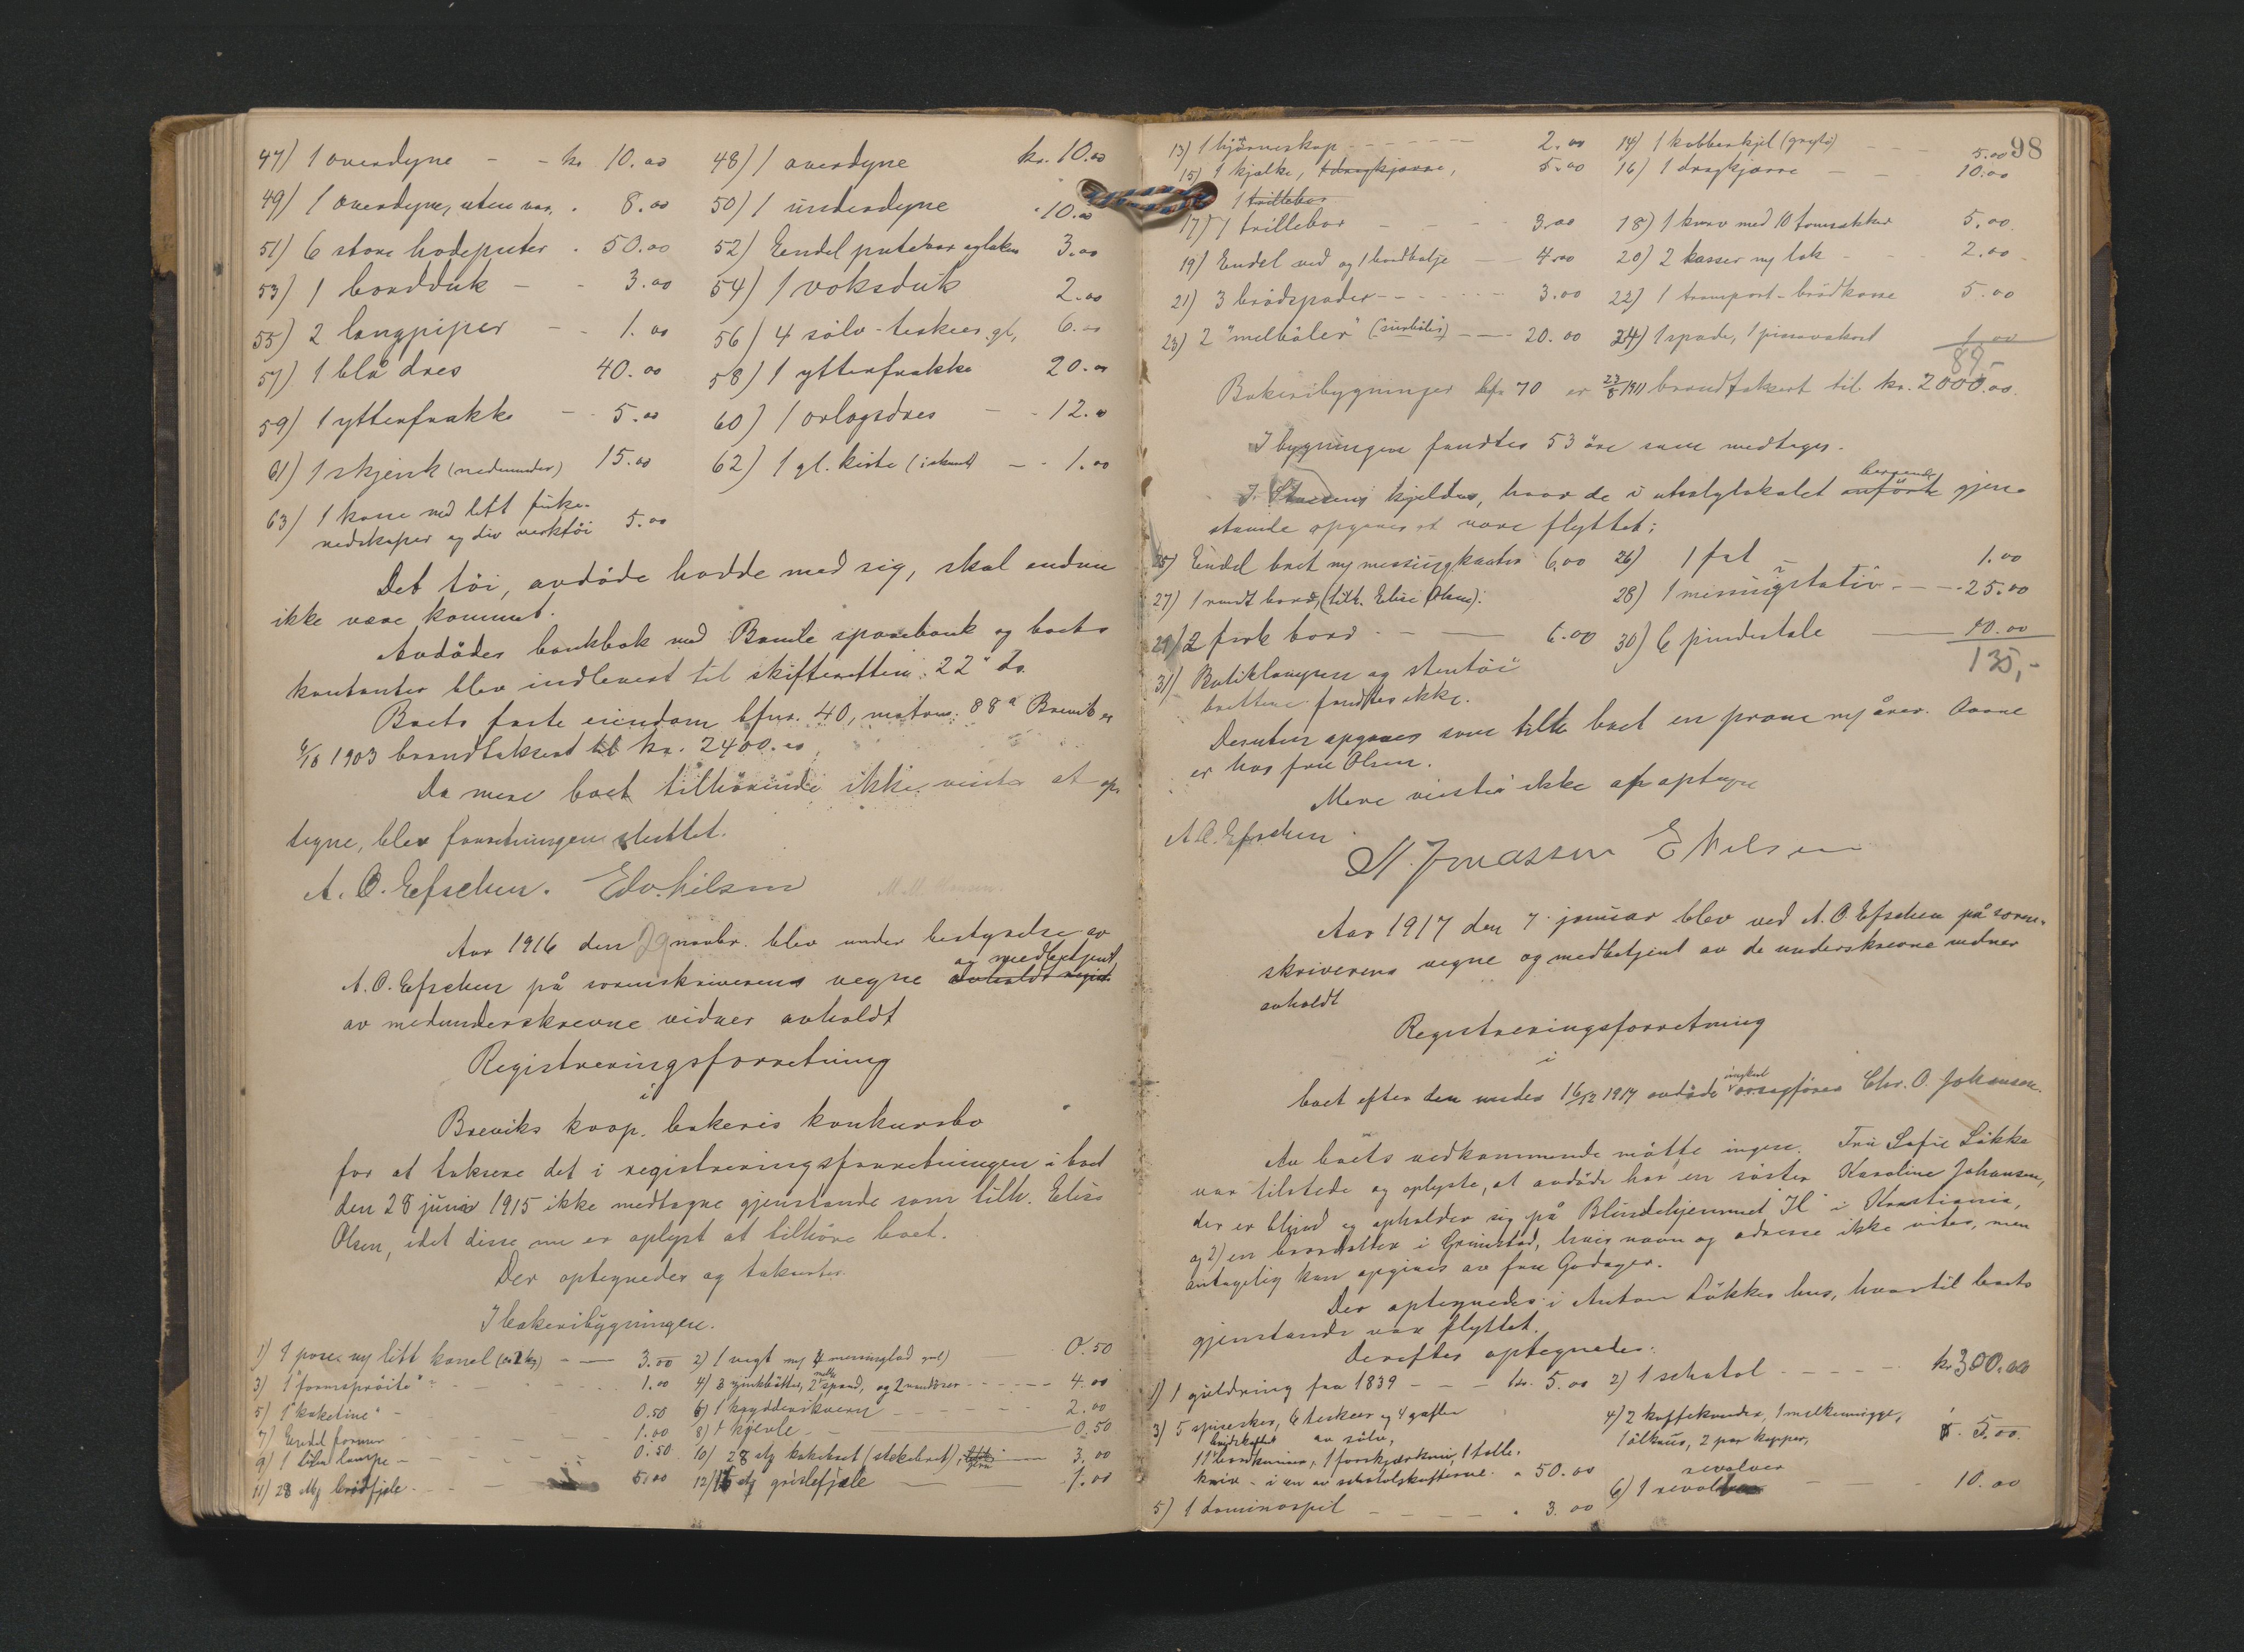 47) 1 overdyne - - kr. 10.00 48) 1 overdyne kr. 10.00
49) 1 overdyne, uten var, . 8.00 50) 1 underdyne " 10.00
51) 6 store hodeputer . 50.00 52) Endel putevar og laken 3.00
53) 1 bordduk - - 3.00 54) 1 voksduk 2.00
55) 2 langpiper - - 1.00 56) 4 sølv-teskeer, gl, 6.00
57) 1 blå dres 40.00 58) 1 ytterfrakke 20.00
59) 1 ytterfrakke - - 5.00 60) 1 orlogsdres - - 12.00
61) 1 skjenk (nedenunder) 15.00 62) 1 gl. kiste (i skuret) - - 1.00
63) 1 kasse med litt fiske-
redskaper og div verktøi 5.00
Det töi, avdöde hadde med sig, skal endnu
ikke være kommet.
Avdödes bankbok med Bamle sparebank og boets
kontanter blev indlevert til skifteretten 22 ds.
Boets faste eiendom bfnr. 40, matrnr. 88a Brevik er
6/10 1903 brandtaksert til kr. 2400.00
Da mere boet tilhörende ikke visstes at op-
tegne, blev forretningen sluttet.
A. O. Efschen. Edv. Nilsen
Aar 1916 den 29 novbr. blev under bestyrelse av
og medbetjent
A. O. Efschen på sorenskriverens vegne avholdt regist.
av medunderskrevne vidner avholdt
Registreringsforretning
i
Breviks koop. bakeris konkursbo
for at taksere det i registreringsforretningen i boet
den 28 juni 1915 ikke medtagne gjenstande som tilh. Elise
Olsen, idet disse nu er oplyst at tilhöre boet.
Der optegnedes og taksertes.
I bakeribygningen.
1) 1 pose ny litt kanel (ca 2 kg) - - 3.00 2) 1 vegt m/ 4 messinglod 0.50
3) 1 "formspröite" - 1.00 4) 3 zinkbötter, 2 spand, og 2 vandöser - - - 4.00
5) 1 "kaketine" - 0.50 6) 1 krydderikvern - - - 2.00
7) Endel former 1.00 8) 1 kjevle - - 0.50
9) 1 liten lampe - 0.50 10) 28 stk kakebret (stekebret) 3.00
11) 28 stk brödfjele - - - 5.00 12) 15 stk grislefjele 1.00
98
13) 1 hjörneskap - - - - 2.00 14) 1 kobberkjel (gryte) - - - 5.00
15) 1 kjelke, 1 dragkjærre, 5.00 16) 1 dragkjærre - - 10.00
1 trillebor
17) 1 trillebor - - - 3.00 18) 1 kurv med 10 tomsækker 5.00
19) Endel ved og 1 vandbalje - 4.00 20) 2 kasser m/ lok - - 2.00
21) 3 brödspader - - - 3.00 22) 1 transport-brödkasse 5.00
23) 2 "melbåler" - - 20.00 24) 1 spade, 1 piasavakost 1.00
89.-
Bakeribygningen bfnr 70 er 23/8 1911 brandtaksert til kr. 2000.00.
I bygningen fandtes 53 öre som medtages.
beroende
I kjelder, hvor de i utsalgslokalet anförte gjen-
stande opgives at være flyttet:
25) Endel bret m/ messingkanter 6.00 26) 1 fat - 1.00
27) 1 rundt bord, (tilh. Elise Olsen). 28) 1 messingstativ - - - 25.00
29) 2 firk bord - - 6.00 30) 6 pindestole 10.00
135,-
31) Butiklampen og stentöi
brettene fandtes ikke.
Desuten opgaves som tilh. boet en pram m/ årer. Denne
er hos fru Olsen.
Mere visstes ikke at optegne
A. O. Efschen. M. Jonassen E Nilsen
Aar 1917 den 7. januar blev ved A. O. Efschen på soren-
skriverens vegne og medbetjent av de underskrevne vidner
avholdt
Registreringsforretning
i
boet efter den under 16/12 1917 avdöde Chr. O. Johansen.
Av boets vedkommende mötte ingen. Fru Sofie Lökke
var tilstede og oplyste, at avdöde har en söster Karoline Johansen,
der er blind og opholder sig på Blindehjemmet "Il" i Kristiania,
og 2) en brordatter i Grimstad, hvis navn og adresse ikke vites, men
antagelig kan opgives av fru Godager.
Der optegnedes i Anton Lökkes hus, hvortil boets
gjenstande var flyttet.
Derefter optegnedes:
1) 1 guldring fra 1839 - - - kr. 5.00 2) 1 schatol - - - - kr 300.00
3) 5 spiseskeer, 6 teskeer og 4 gafler 4) 2 kaffekander, 1 melkemugge,
av sölv, 1 ölkrus, 2 par kopper, 5.00.
11 bordkniver, 1 forskjærkniv, 1 
kniv - i en av schatolskufferne. " 50.00 revolver
5) 1 dominospil - - - - " 3.00 6) 1 revolver - - - 10.00